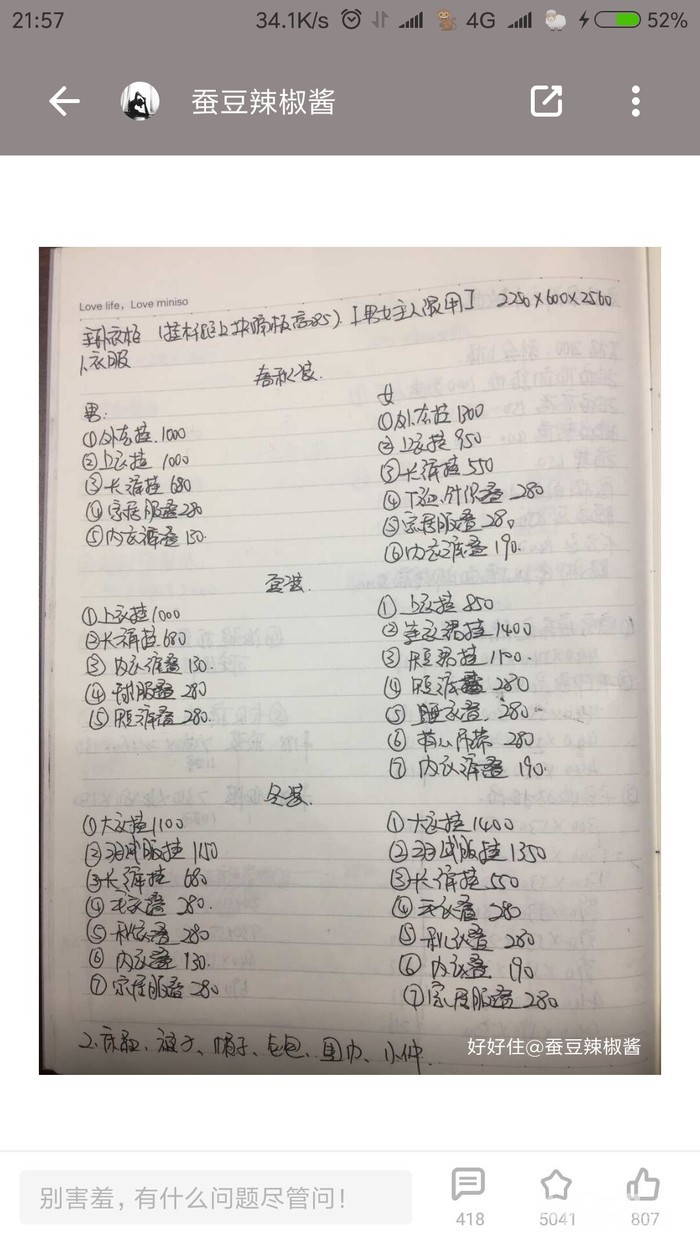 21:57 34.1K/s 4G 52%
蚕豆辣椒酱
Love life, Love miniso
卧衣柜 [男女主人混用] 2250×600×2560
1.衣服
春秋装.
男:
①外套挂 1000
②上衣挂 1000
③长裤挂 680
④家居服叠 280
⑤内衣裤叠 130.
女
①外套挂 1300
②上衣挂 950
③长裤挂 550
④T恤.针织叠 280
⑤家居服叠 280
⑥内衣裤叠 190.
夏装
①上衣挂 1000
②长裤挂 680
③内衣裤叠 130.
④球服叠 280
⑤短裤叠 280.
①上衣挂 850
②连衣裙挂 1400
③短裙挂
④短裤叠 280
⑤睡衣叠 280
⑥背心吊带 280
⑦内衣裤叠 190
冬装.
①大衣挂 1100
②羽绒服挂 1150
③长裤挂 680
④毛衣叠 280.
⑤秋衣叠 280
⑥内衣叠 130.
⑦家居服叠 280
①大衣挂 1400
②羽绒服挂 1350
③长裤挂 550
④毛衣叠 280
⑤秋衣叠 280
⑥内衣叠 190
⑦家居服叠 280
2.床品、被子、帽子、包包、围巾、小件.
好好住@蚕豆辣椒酱
别害羞，有什么问题尽管问！
418 5041 807